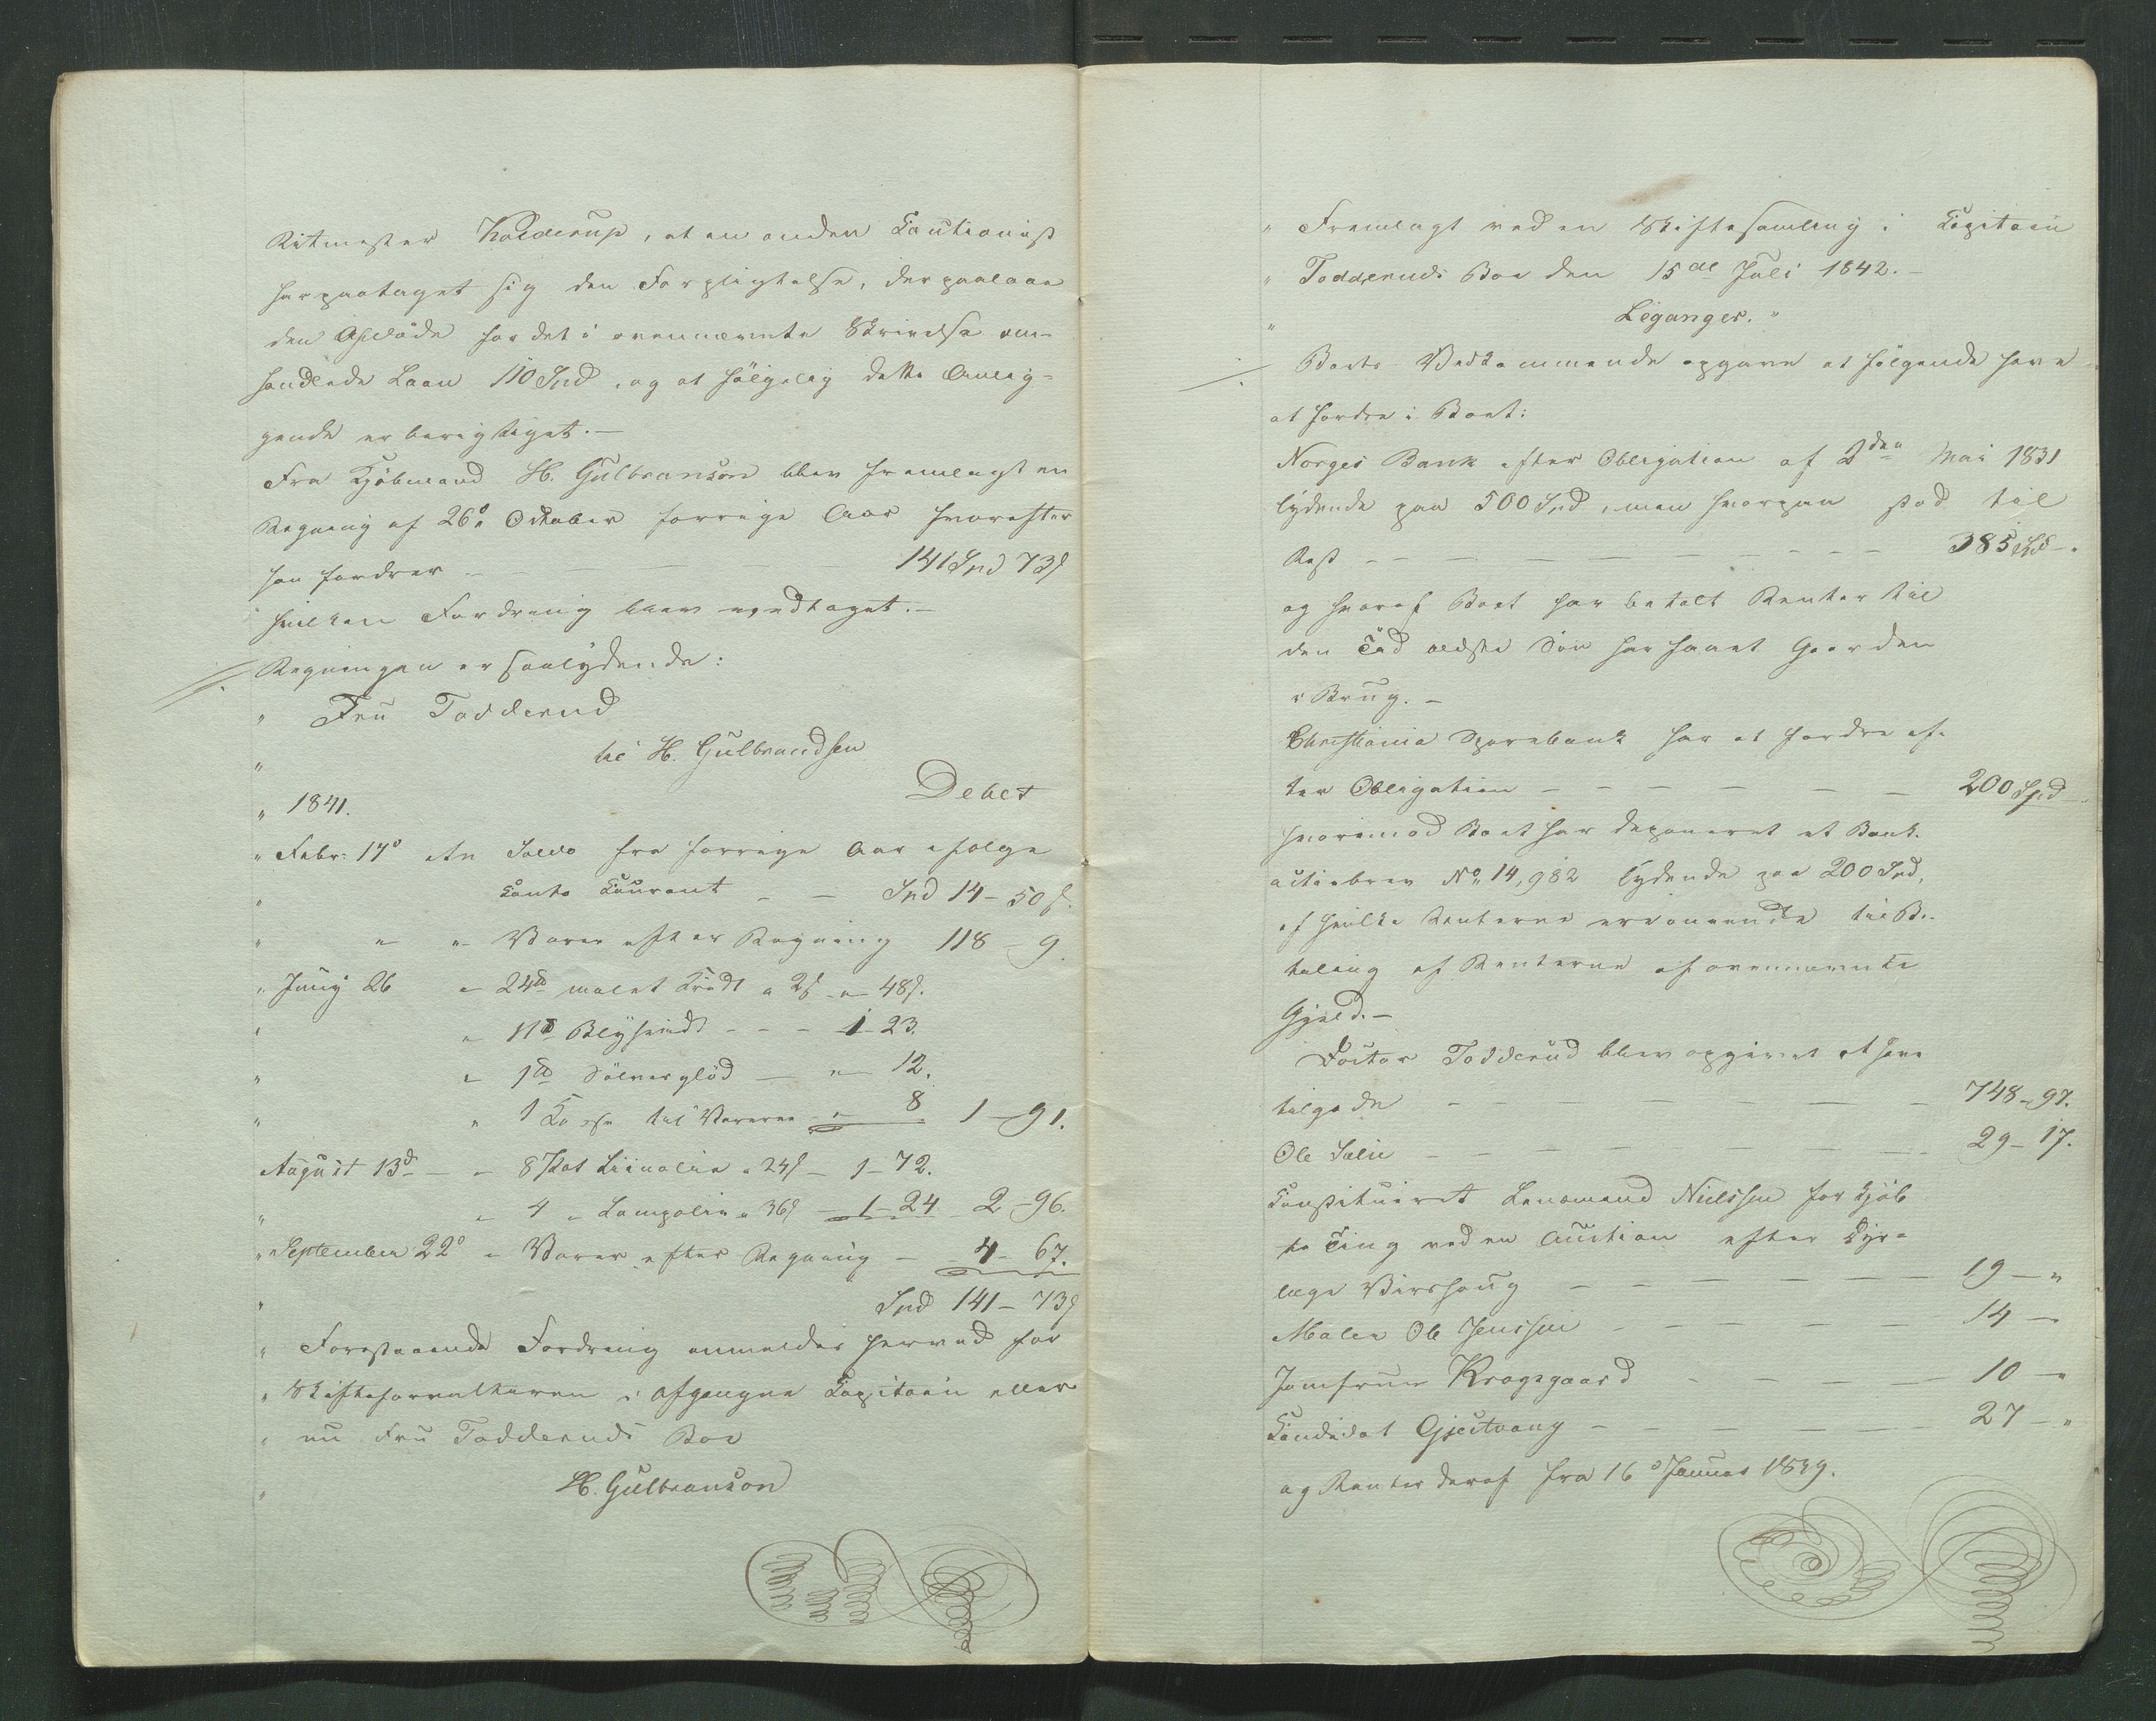 Ritmester Kolderup, at en anden Cautionist
har paataget sig den Forpligtelse, der paalaae
den Afdøde for det i ovennævnte Skrivelse om-
handlede Laan 110 Spd, og at følgelig dette Anlig-
gende er berigtiget.—
Fra Kjøbmand H. Gulbranson blev fremlagt en
Regning af 26de Oktober forrige Aar hvorefter
han fordrer — — — 141 Spd 73ß
hvilken Fordring blev vedtaget.—
Regningen er saalydende:
" Fru Todderud
" til H. Gulbrandsen
" 1841. Debet
" Febr: 17d An Saldo fra forrige Aar ifølge
" Conto Courant — — Spd 14 - 50ß.
" " " Varer efter Regning 118 - 9.
" Juny 26 " 24 ℔ malet Kridt a 2ß " 48ß.
" " 11 ℔ Blyhvidt - - - 1 - 23.
" " 1 ℔ Sølverglød — " 12.
" " 1 Kasse til Varerne - " 8 1 - 91.
August 13d — " 8 Pot Liinolie a 24ß - 1 - 72.
" " 4 " Lampolie a 36ß — 1 - 24 2 - 96.
" September 22d " Varer efter Regning — 4 - 67.
" Spd 141 - 73ß
" Forestaaende Fordring anmeldes herved for
" Skifteforvalteren i afgangne Capitain eller
" nu Fru Todderuds Boe
" H. Gulbranson
" Fremlagt ved en Skiftesamling i Capitain
" Todderuds Boe den 15de Juli 1842.—
" Leganger. "
Boets Vedkommende opgave at følgende have
at fordre i Boet:
Norges Bank efter Obligation af 2den Mai 1831
lydende paa 500 Spd, men hvorpaa stod til
Rest — — — 385 Spd -.
og hvoraf Boet har betalt Renter til
den Tid ældste Søn har faaet Gaarden
i Brug.—
Christiania Sparebank har at fordre ef-
ter Obligation — — — 200 Spd -.
hvorimod Boet har deponeret et Bank-
actiebrev No 14,982 lydende paa 200 Spd,
af hvilke Renterne ere anvendte til Be-
taling af Renterne af ovennævnte
Gjeld.—
Doctor Todderud blev opgivet at have
tilgode — — — 748 - 97.
Ole Sælie — — — 29 - 17.
Constitueret Lensmand Nielsen for kjøb-
te Ting ved en Auction efter Dyr-
læge Wirshoug — — — 19 — "
Maler Ole Jenssen — — — 14 —
Jomfrue Krogsgaard — — — 10 — "
Candidat Gjestvang — — — 27 — "
og Renter deraf fra 16d Januar 1839.